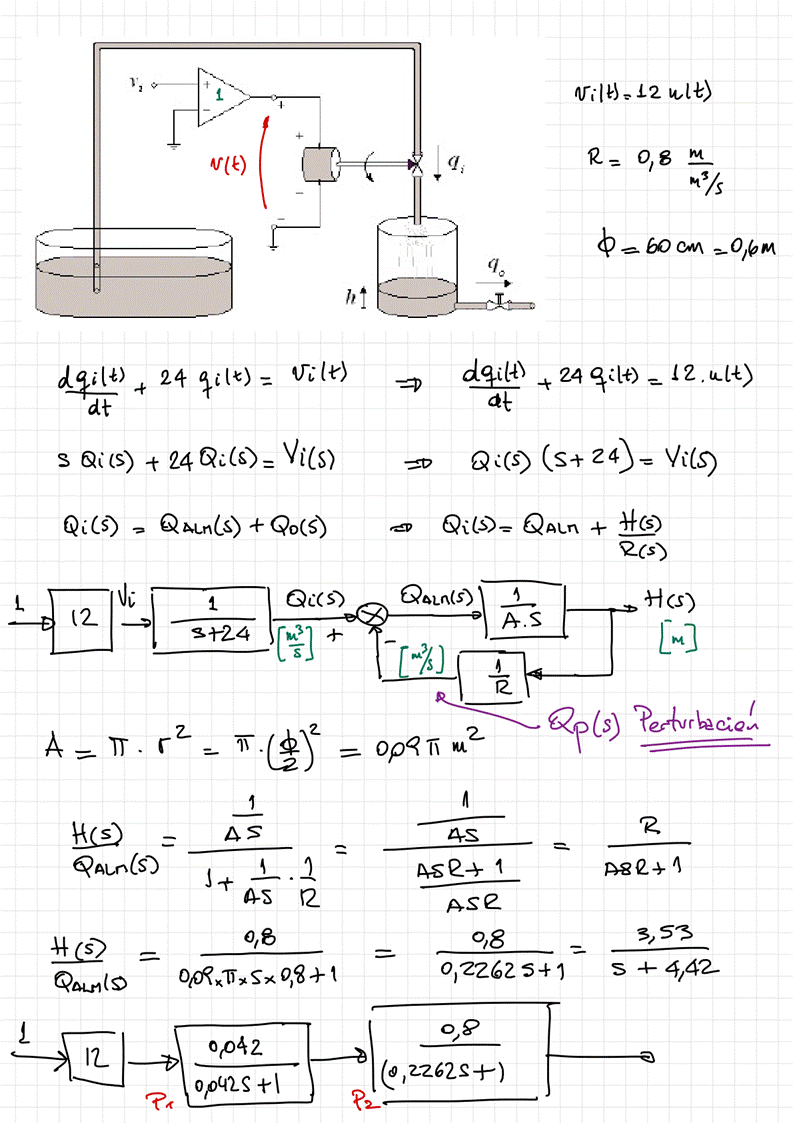 v₁
+
1
−
+
v(t)
+
−
−
qᵢ
h
qₒ
Vi(t) = 12 u(t)
R = 0,8 m / m³/s
ϕ = 60 cm = 0,6 m
dqi(t)/dt + 24 qi(t) = Vi(t) ⇒ dqi(t)/dt + 24 qi(t) = 12. u(t)
s Qi(s) + 24 Qi(s) = Vi(s) ⇒ Qi(s) (s + 24) = Vi(s)
Qi(s) = QALM(s) + Qo(s) ⇒ Qi(s) = QALM + H(s)/R(s)
1 12 Vi 1/(s+24) Qi(s) [m³/s] + − QALM(s) 1/A.S H(s) [m]
[m³/s] 1/R
Qp(s) Perturbación
A = π · r² = π · (ϕ/2)² = 0,09 π m²
H(s)/QALM(s) = (1/AS)/(1 + 1/AS · 1/R) = (1/AS)/((ASR + 1)/ASR) = R/(ASR + 1)
H(s)/QALM(s) = 0,8/(0,09 x π x s x 0,8 + 1) = 0,8/(0,2262 s + 1) = 3,53/(s + 4,42)
1 12 0,042/(0,042s + 1) 0,8/(0,2262s + )
P1 P2